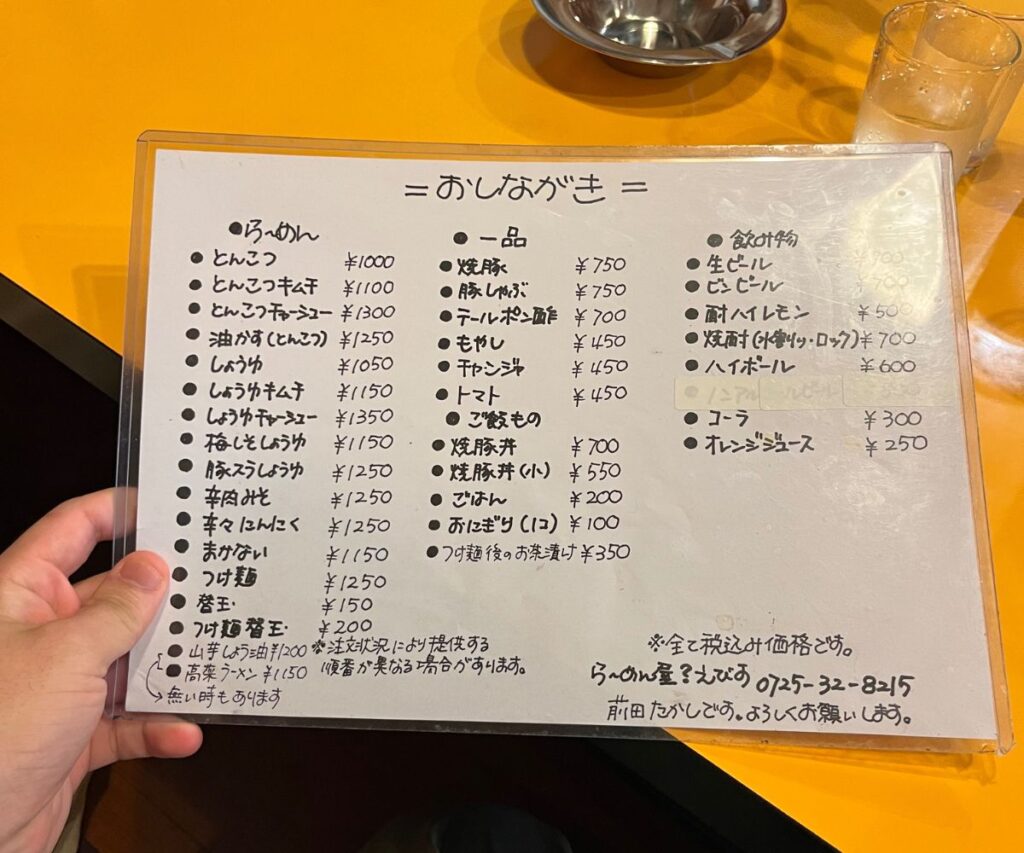 =おしながき=
●ら〜めん
●とんこつ ¥1000
●とんこつキムチ ¥1100
●とんこつチャーシュー ¥1300
●油かす(とんこつ) ¥1250
●しょうゆ ¥1050
●しょうゆキムチ ¥1150
●しょうゆチャーシュー ¥1350
●梅しそしょうゆ ¥1150
●豚スラしょうゆ ¥1250
●辛肉みそ ¥1250
●辛々にんにく ¥1250
●まかない ¥1150
●つけ麺 ¥1250
●替玉 ¥150
●つけ麺替玉 ¥200
●山芋しょう油 ¥1200
●高菜ラーメン ¥1150
→無い時もあります
※注文状況により提供する
順番が異なる場合があります。
●一品
●焼豚 ¥750
●豚しゃぶ ¥750
●テールポン酢 ¥700
●もやし ¥450
●チャンジャ ¥450
●トマト ¥450
●ご飯もの
●焼豚丼 ¥700
●焼豚丼(小) ¥550
●ごはん ¥200
●おにぎり(1コ) ¥100
●つけ麺後のお茶漬け ¥350
●飲み物
●生ビール ¥700
●ビンビール
●酎ハイレモン ¥500
●焼酎(水割り・ロック) ¥700
●ハイボール ¥600
●コーラ ¥300
●オレンジジュース ¥250
※全て税込み価格です。
ら〜めん屋?えびす 0725-32-8215
前田たかしです。よろしくお願いします。